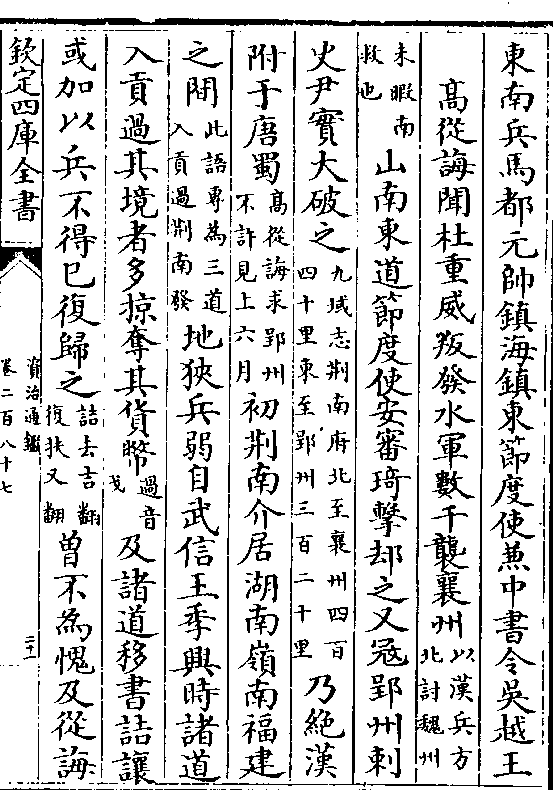 東南兵馬都元帥鎮海鎮東節度使兼中書令吳越王
高從誨聞杜重威叛發水軍數千襲襄州以漢兵方北討魏州
未暇南救也山南東道節度使安審琦擊却之又冦郢州刺
史尹實大破之九域志荆南府北至襄州四百四十里東至郢州三百二十里乃絶漢
附于唐蜀高從誨求郢州不許見上六月初荆南介居湖南嶺南福建
之間此語專為三道入貢過荆南發地狹兵弱自武信王季興時諸道
入貢過其境者多掠奪其貨幣過音戈及諸道移書詰讓
或加以兵不得已復歸之詰去吉翻復扶又翻曾不為愧及從誨
欽定四庫全書
資治通鑑
卷二百八十七